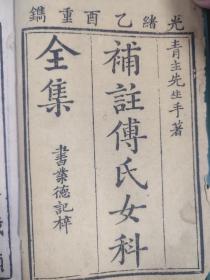 光緒乙酉重鐫
青主先生手著
補註傅氏女科
全集
書業德記梓